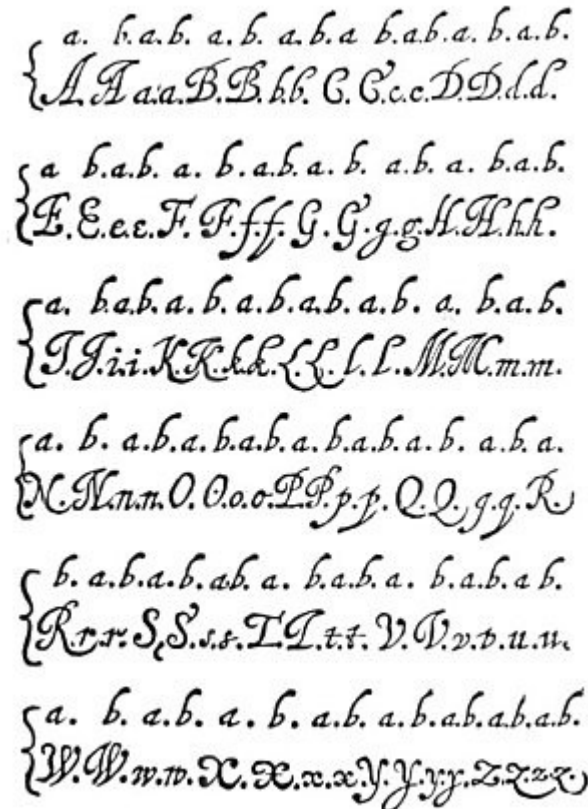 a. b. a. b. a. b. a. b. a b. a. b. a. b. a. b.
A. A a. a. B. B. b. b. C. C. c. c. D. D. d. d.
a b. a. b. a. b. a. b. a. b. a. b. a. b. a. b.
E. E. e. e. F. F. f. f. G. G. g. g. H. H. h. h.
a. b. a. b. a. b. a. b. a. b. a. b. a. b. a. b. a. b. a. b.
I. I. i. i. K. K. k. k. L. L. l. l. M. M. m. m.
a. b. a. b. a. b. a. b. a. b. a. b. a. b. a. b. a.
N. N. n. n. O. O. o. o. P. P. p. p. Q. Q. q. q. R.
b. a. b. a. b. a b. a. b. a. b. a. b. a. b. a b.
R. r. r. S. S. s. s. T. T. t. t. V. V. v. v. u. u.
a. b. a. b. a. b. a. b. a. b. a. b. a. b. a. b.
W. W. w. w. X. X. x. x. y. y. y. y. Z. Z. z. z.